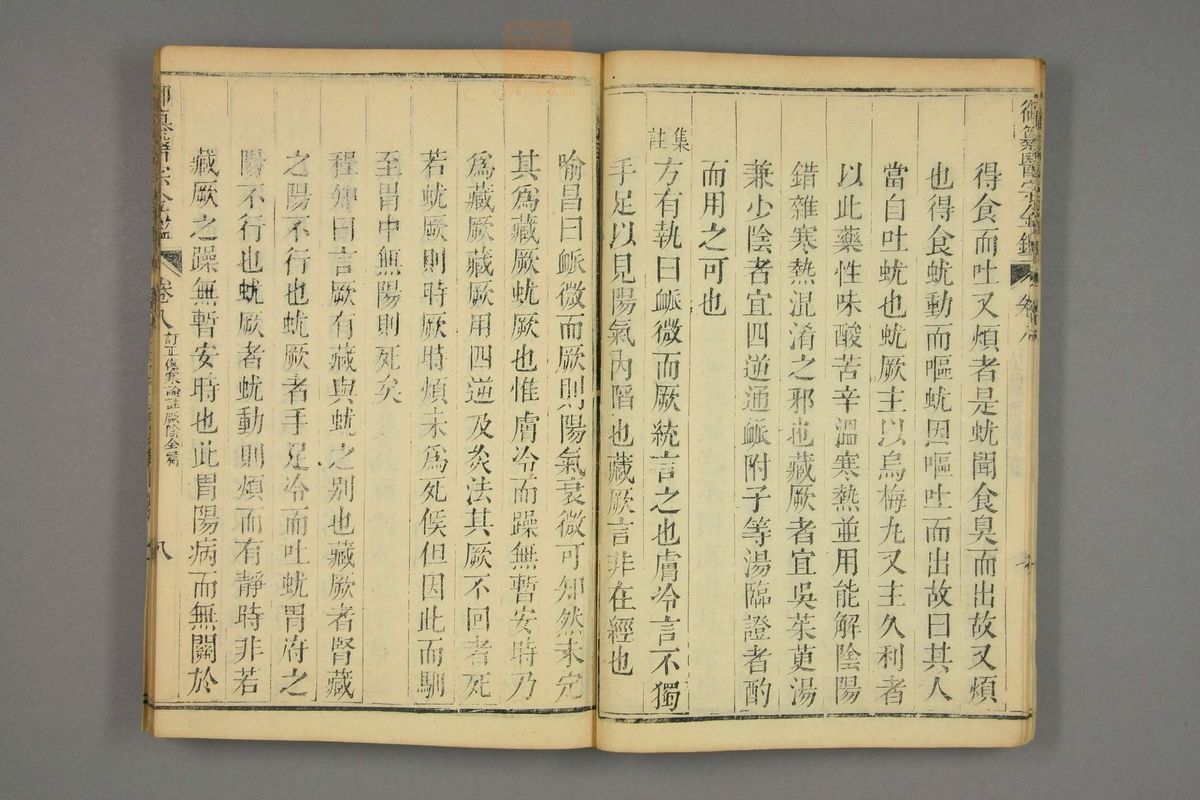 御纂醫宗金鑑
得食而吐又煩者是蚘聞食臭而出故又煩
也得食蚘動而嘔蚘因嘔吐而出故曰其人
當自吐蚘也蚘厥主以烏梅丸又主久利者
以此藥性味酸苦辛溫寒熱並用能解陰陽
錯雜寒熱混淆之邪也藏厥者宜吳茱萸湯
兼少陰者宜四逆通脈附子等湯臨證者酌
而用之可也
集註
方有執曰脈微而厥統言之也膚冷言不獨
手足以見陽氣內陷也藏厥言非在經也
喻昌曰脈微而厥則陽氣衰微可知然未定
其爲藏厥蚘厥也惟膚冷而躁無暫安時乃
爲藏厥藏厥用四逆及灸法其厥不回者死
若蚘厥則時厥時煩未爲死候但因此而馴
至胃中無陽則死矣
程知曰言厥有藏與蚘之别也藏厥者腎藏
之陽不行也蚘厥者手足冷而吐蚘胃府之
陽不行也蚘厥者蚘動則煩而有靜時非若
藏厥之躁無暫安時也此胃陽病而無關於
御纂醫宗金鑑 卷八 訂正傷寒論註厥陰全篇 八